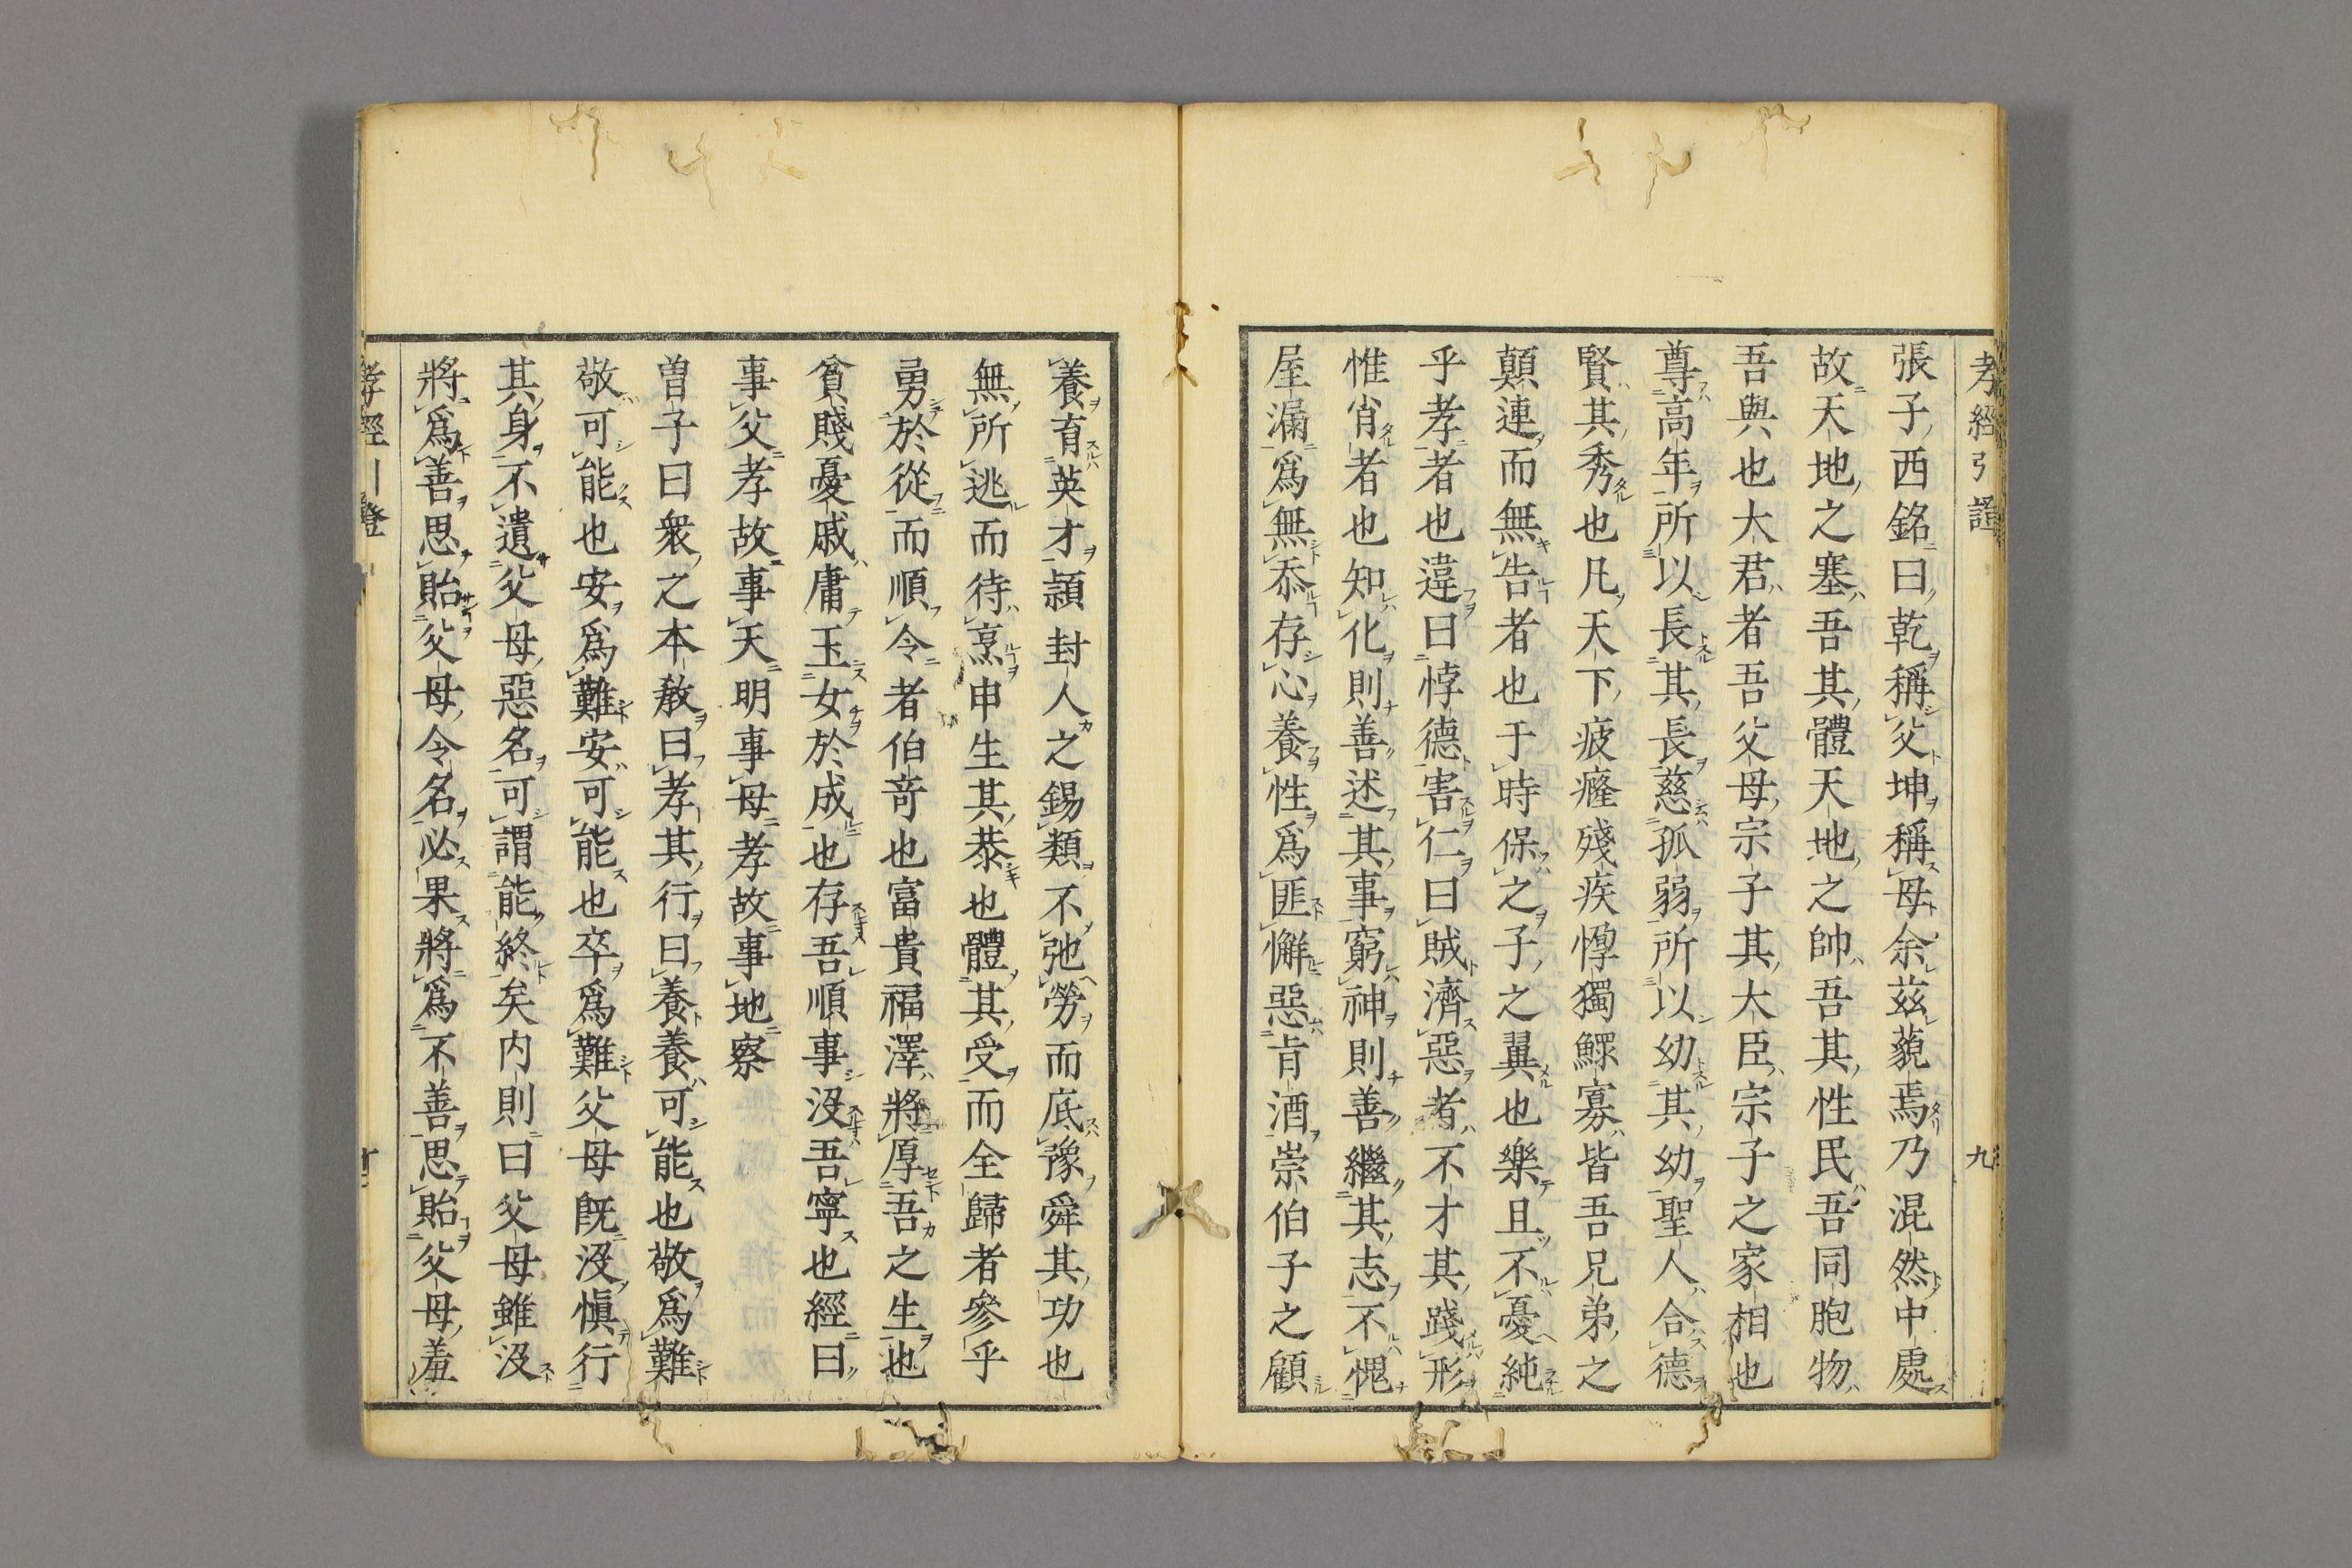 孝經引證
九
張子西銘曰乾稱父坤稱母余茲藐焉乃混然中處
故天地之塞吾其體天地之帥吾其性民吾同胞物
吾與也大君者吾父母宗子其大臣宗子之家相也
尊高年所以長其長慈孤弱所以幼其幼聖人合德
賢其秀也凡天下疲癃殘疾惸獨鰥寡皆吾兄弟之
顛連而無告者也于時保之子之翼也樂且不憂純
乎孝者也違曰悖德害仁曰賊濟惡者不才其踐形
惟肖者也知化則善述其事窮神則善繼其志不愧
屋漏爲無忝存心養性爲匪懈惡旨酒崇伯子之顧
養育英才頴封人之錫類不弛勞而底豫舜其功也
無所逃而待烹申生其恭也體其受而全歸者參乎
勇於從而順令者伯竒也富貴福澤將厚吾之生也
貧賤憂戚庸玉女於成也存吾順事没吾寧也經曰
事父孝故事天明事母孝故事地察
曽子曰衆之本教曰孝其行曰養養可能也敬爲難
敬可能也安爲難安可能也卒爲難父母既没愼行
其身不遺父母惡名可謂能終矣内則曰父母雖没
將爲善思貽父母令名必果將爲不善思貽父母羞
孝經 證